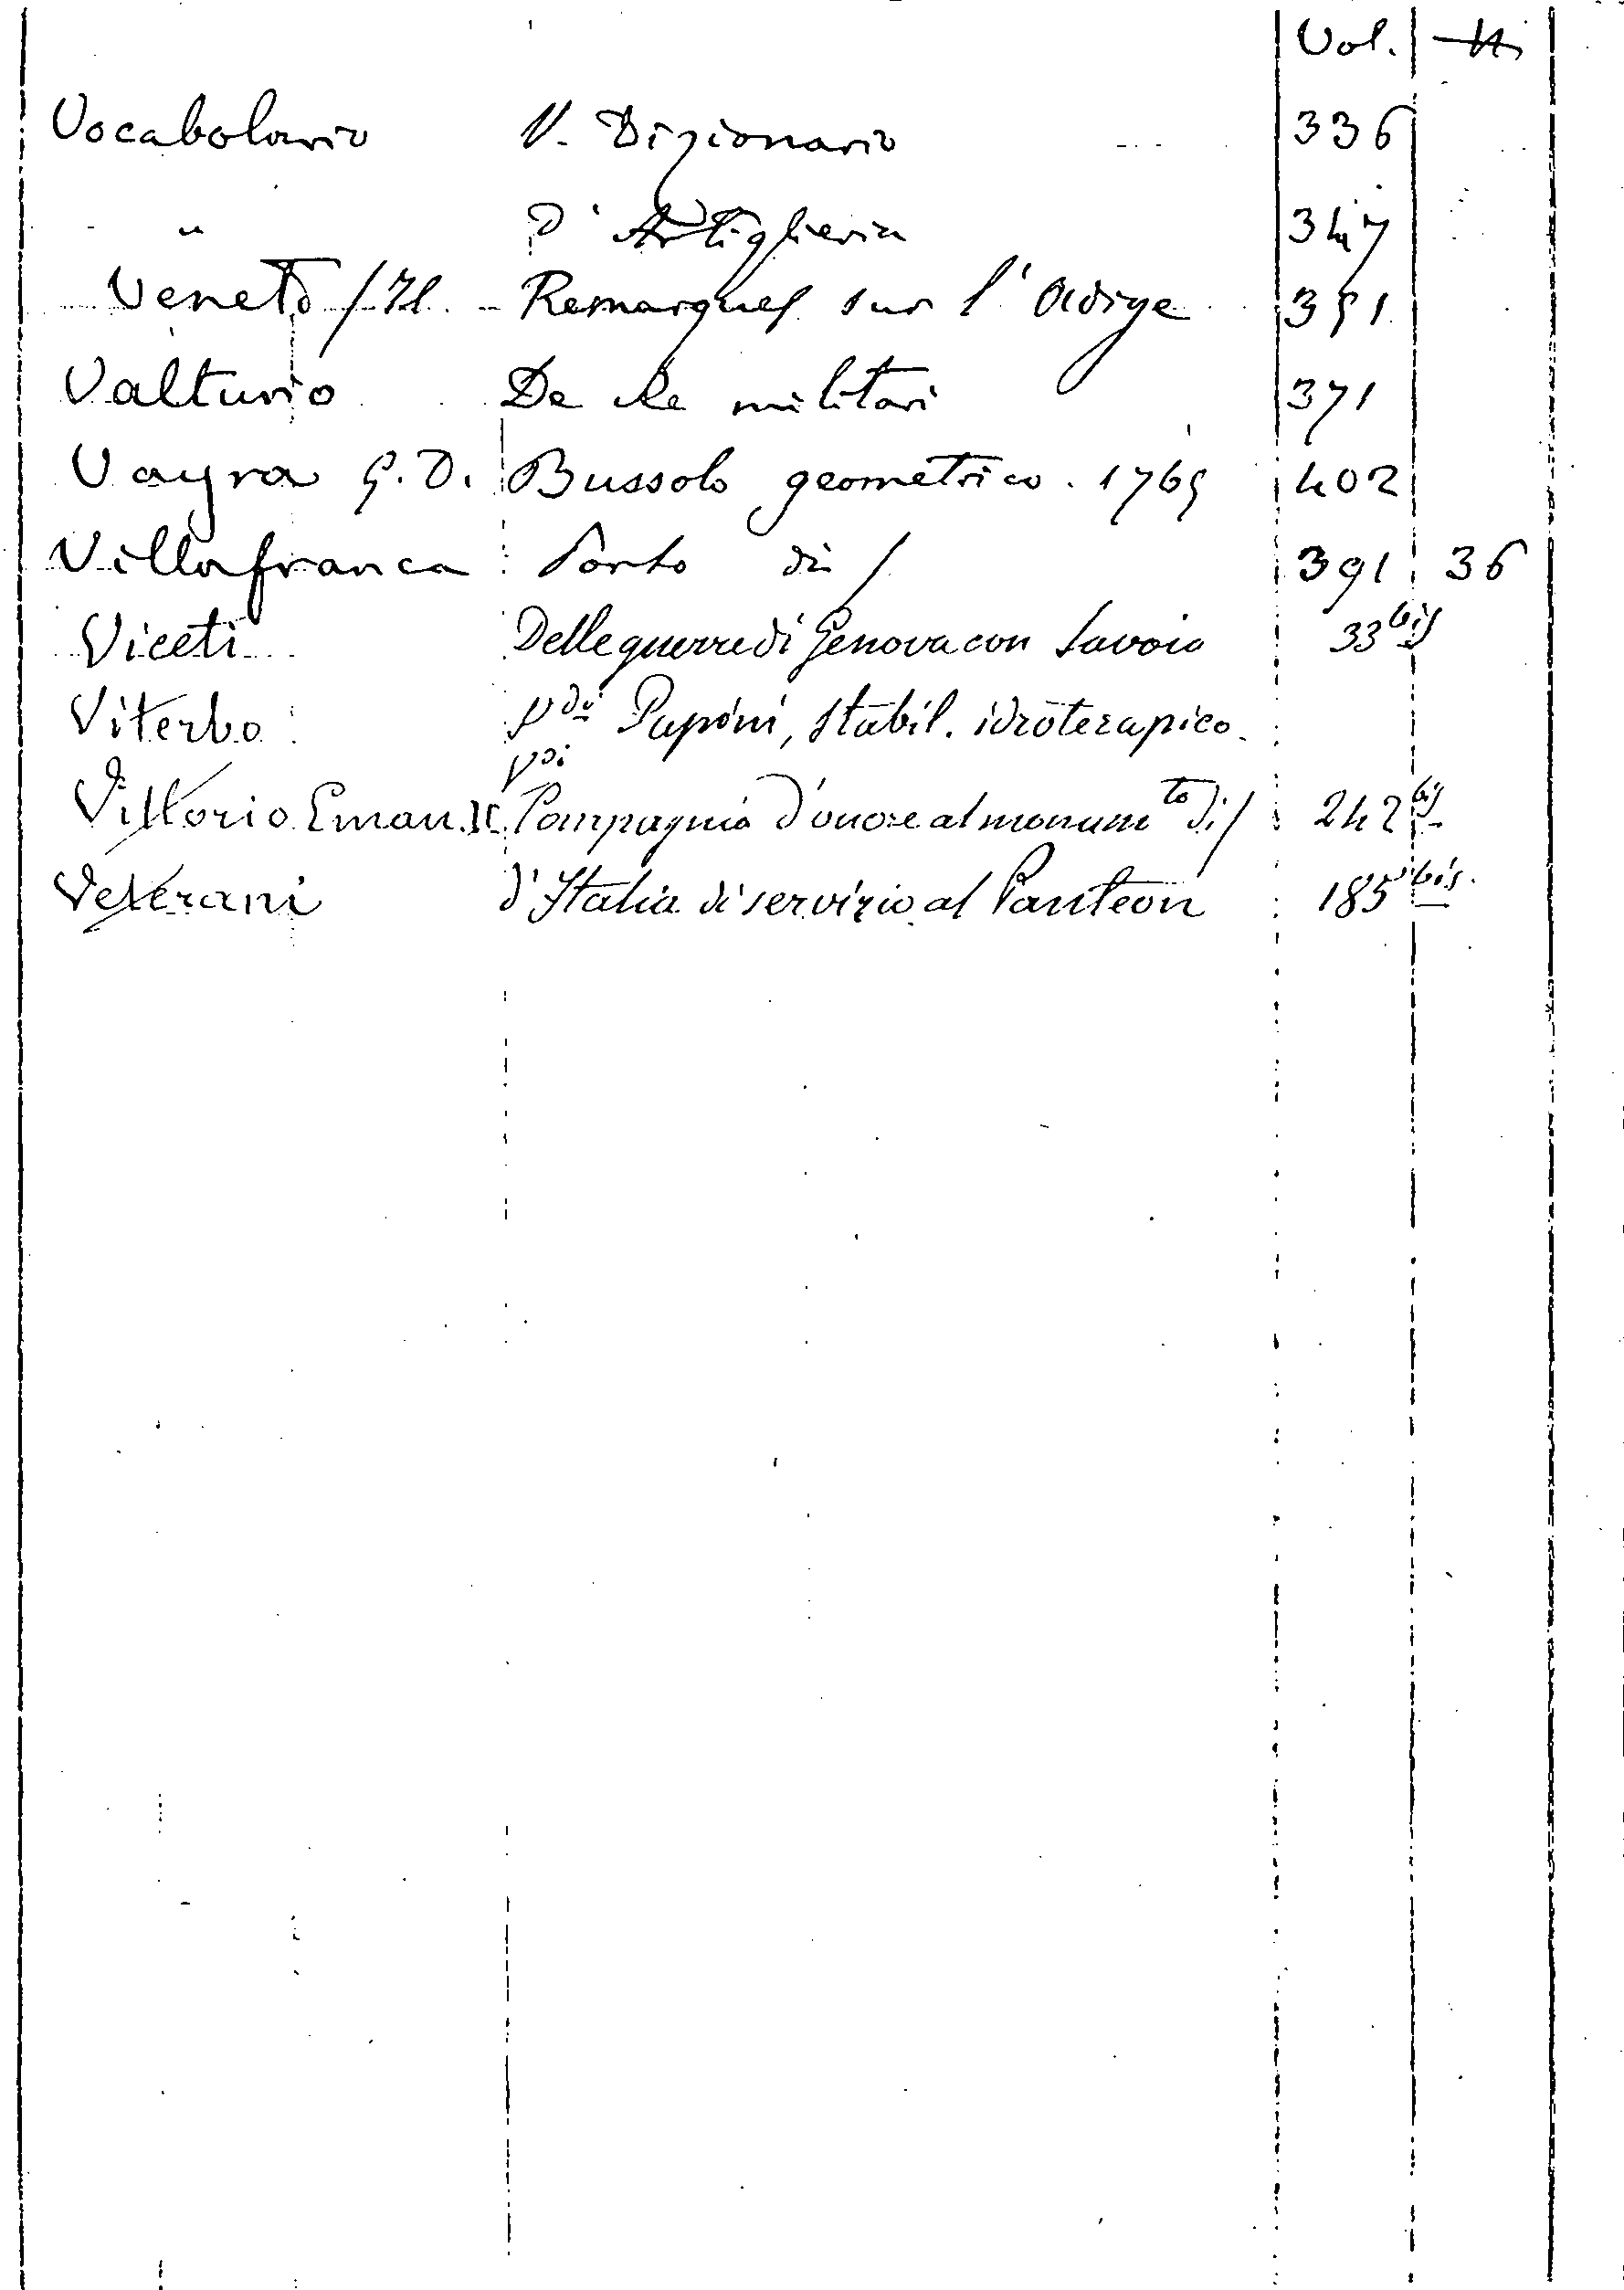 Vol.
Vocabolario V. Dizionario 336
" d'Artiglieria 347
Veneto (Il Remarques sur l'Adige 351
Valturio De Re militari 371
Vayra G. D. Bussolo geometrico. 1765 402
Villafranca Porto di / 391 36
Viceti Delle guerre di Genova con Savoia 33 bis
Viterbo Papini, Stabil. idroterapico.
Vittorio Eman. II Compagnia d'onore al monum to di / 242 bis
Veterani d'Italia di servizio al Panteon 185 bis.